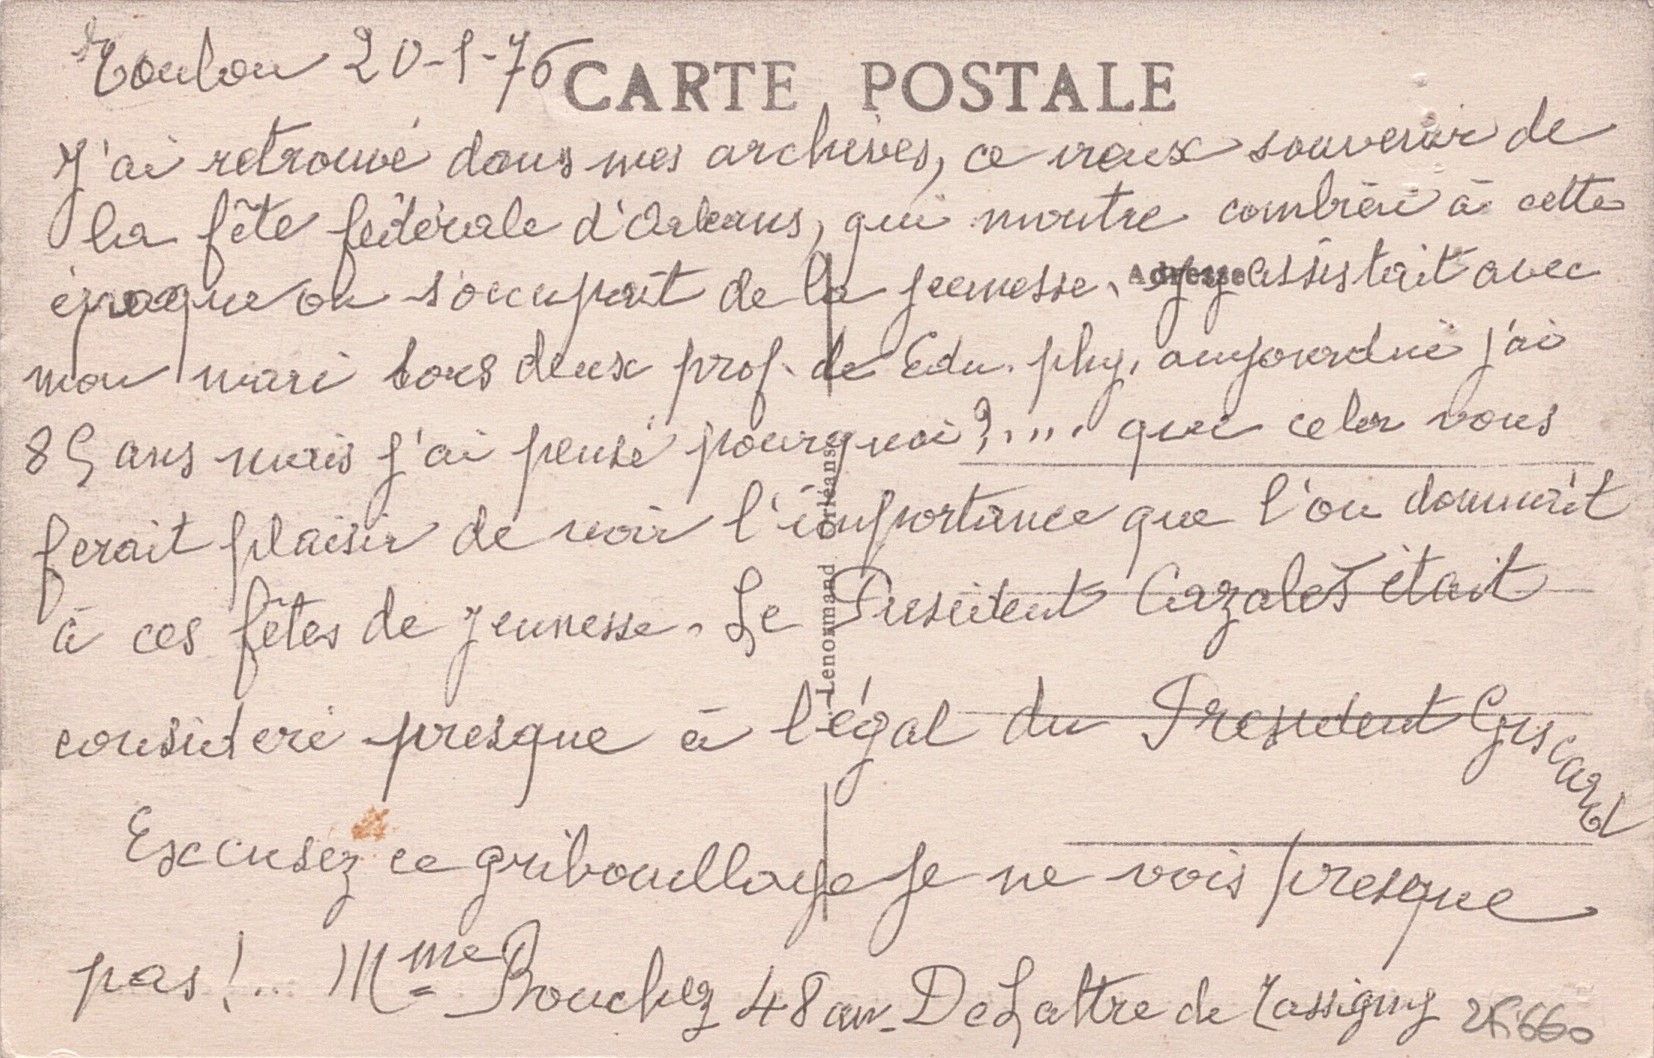 Toulon 20-1-76
CARTE POSTALE
J'ai retrouvé dans mes archives, ce vieux souvenir de
la fête fédérale d'Orleans, qui montre combien à cette
époque on s'occupait de la jeunesse. J'y assistait avec
Adresse
mon mari tous deux prof. de Edu. phy, aujourdui j'ai
85 ans mais j'ai pensé pourquoi?.... que cela vous
ferait plaisir de voir l'importance que l'on donnait
à ces fêtes de Jeunesse. Le President Cazalet était
consideré presque à l'égal du President Giscard
Excusez ce gribouillage je ne vois presque
pas!.. Mme Bouchez 48 av. De Lattre de Tassigny
Lenormand Orléans